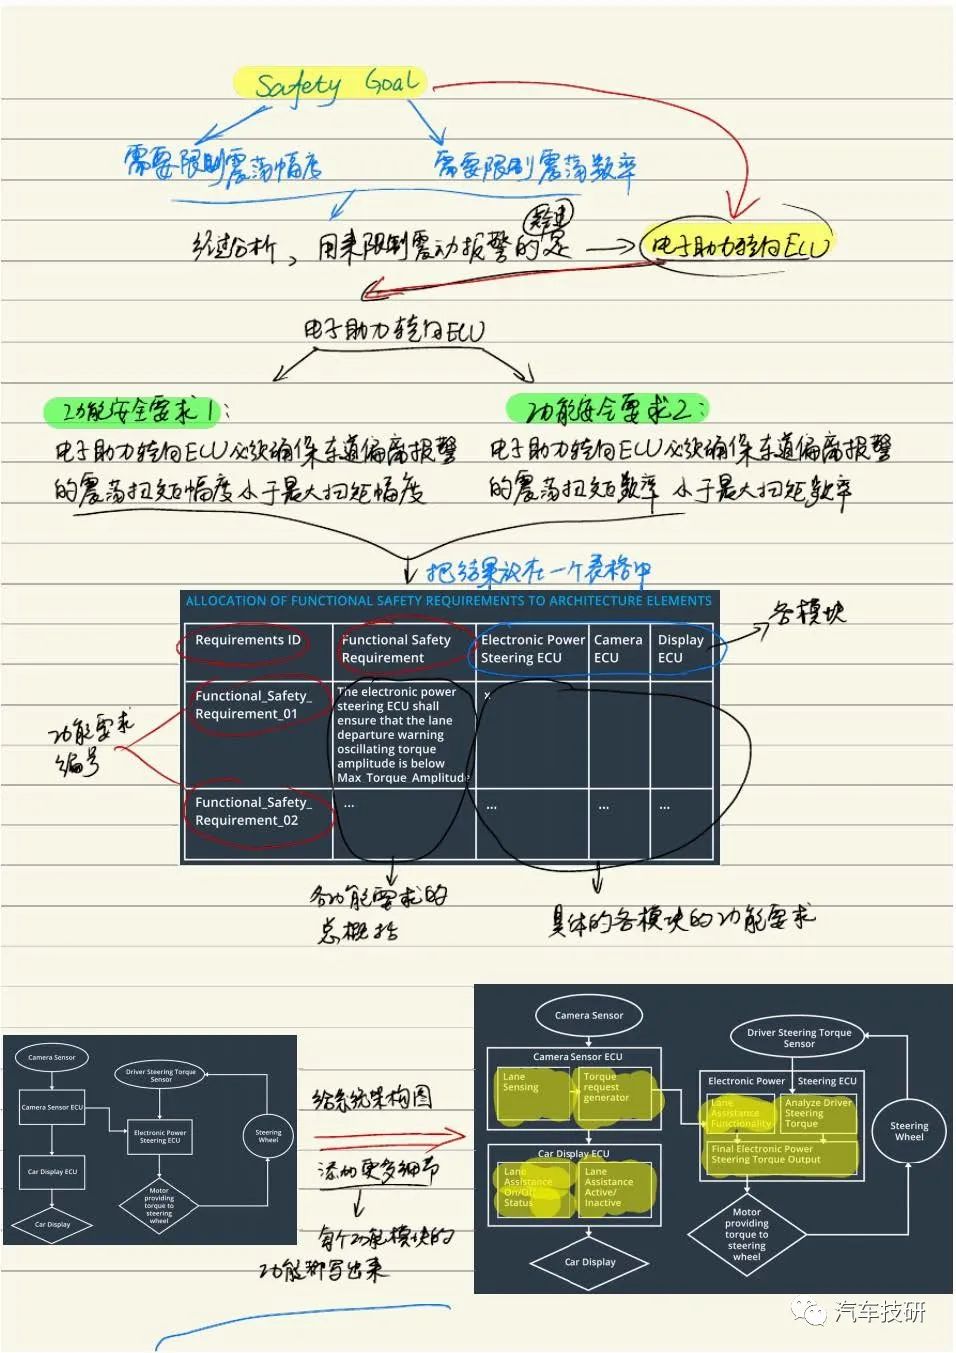 Safety Goal
需要限制震荡幅度
需要限制震荡频率
经过分析，用来限制震动报警的是
电子助力转向ECU
电子助力转向ECU
功能安全要求1：
电子助力转向ECU必须确保车道偏离报警
的震荡扭矩幅度小于最大扭矩幅度
功能安全要求2：
电子助力转向ECU必须确保车道偏离报警
的震荡扭矩频率小于最大扭矩频率
把结果放在一个表格中
ALLOCATION OF FUNCTIONAL SAFETY REQUIREMENTS TO ARCHITECTURE ELEMENTS
各模块
Requirements ID
Functional Safety
Requirement
Electronic Power
Steering ECU
Camera
ECU
Display
ECU
Functional_Safety_
Requirement_01
The electronic power
steering ECU shall
ensure that the lane
departure warning
oscillating torque
amplitude is below
Max_Torque_Amplitude
x
功能要求
编号
Functional_Safety_
Requirement_02
...
...
...
...
各功能要求的
总概括
具体的各模块的功能要求
Camera Sensor
Camera Sensor ECU
Car Display ECU
Car Display
Driver Steering Torque
Sensor
Electronic Power
Steering ECU
Steering
Wheel
Motor
providing
torque to
steering
wheel
给系统架构图
添加更多细节
每个功能模块的
功能都写出来
Camera Sensor
Camera Sensor ECU
Lane
Sensing
Torque
request
generator
Car Display ECU
Lane
Assistance
On/Off
Status
Lane
Assistance
Active/
Inactive
Car Display
Driver Steering Torque
Sensor
Electronic Power Steering ECU
Lane
Assistance
Functionality
Analyze Driver
Steering
Torque
Final Electronic Power
Steering Torque Output
Motor
providing
torque to
steering
wheel
Steering
Wheel
汽车技研